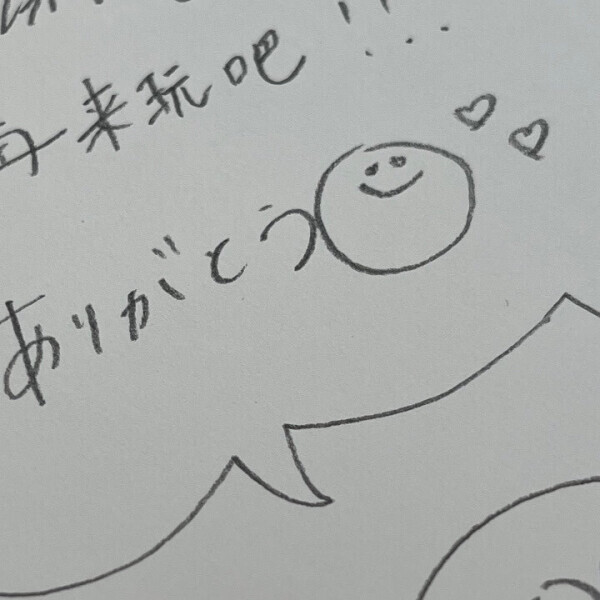 再来玩吧!!...
ありがとう